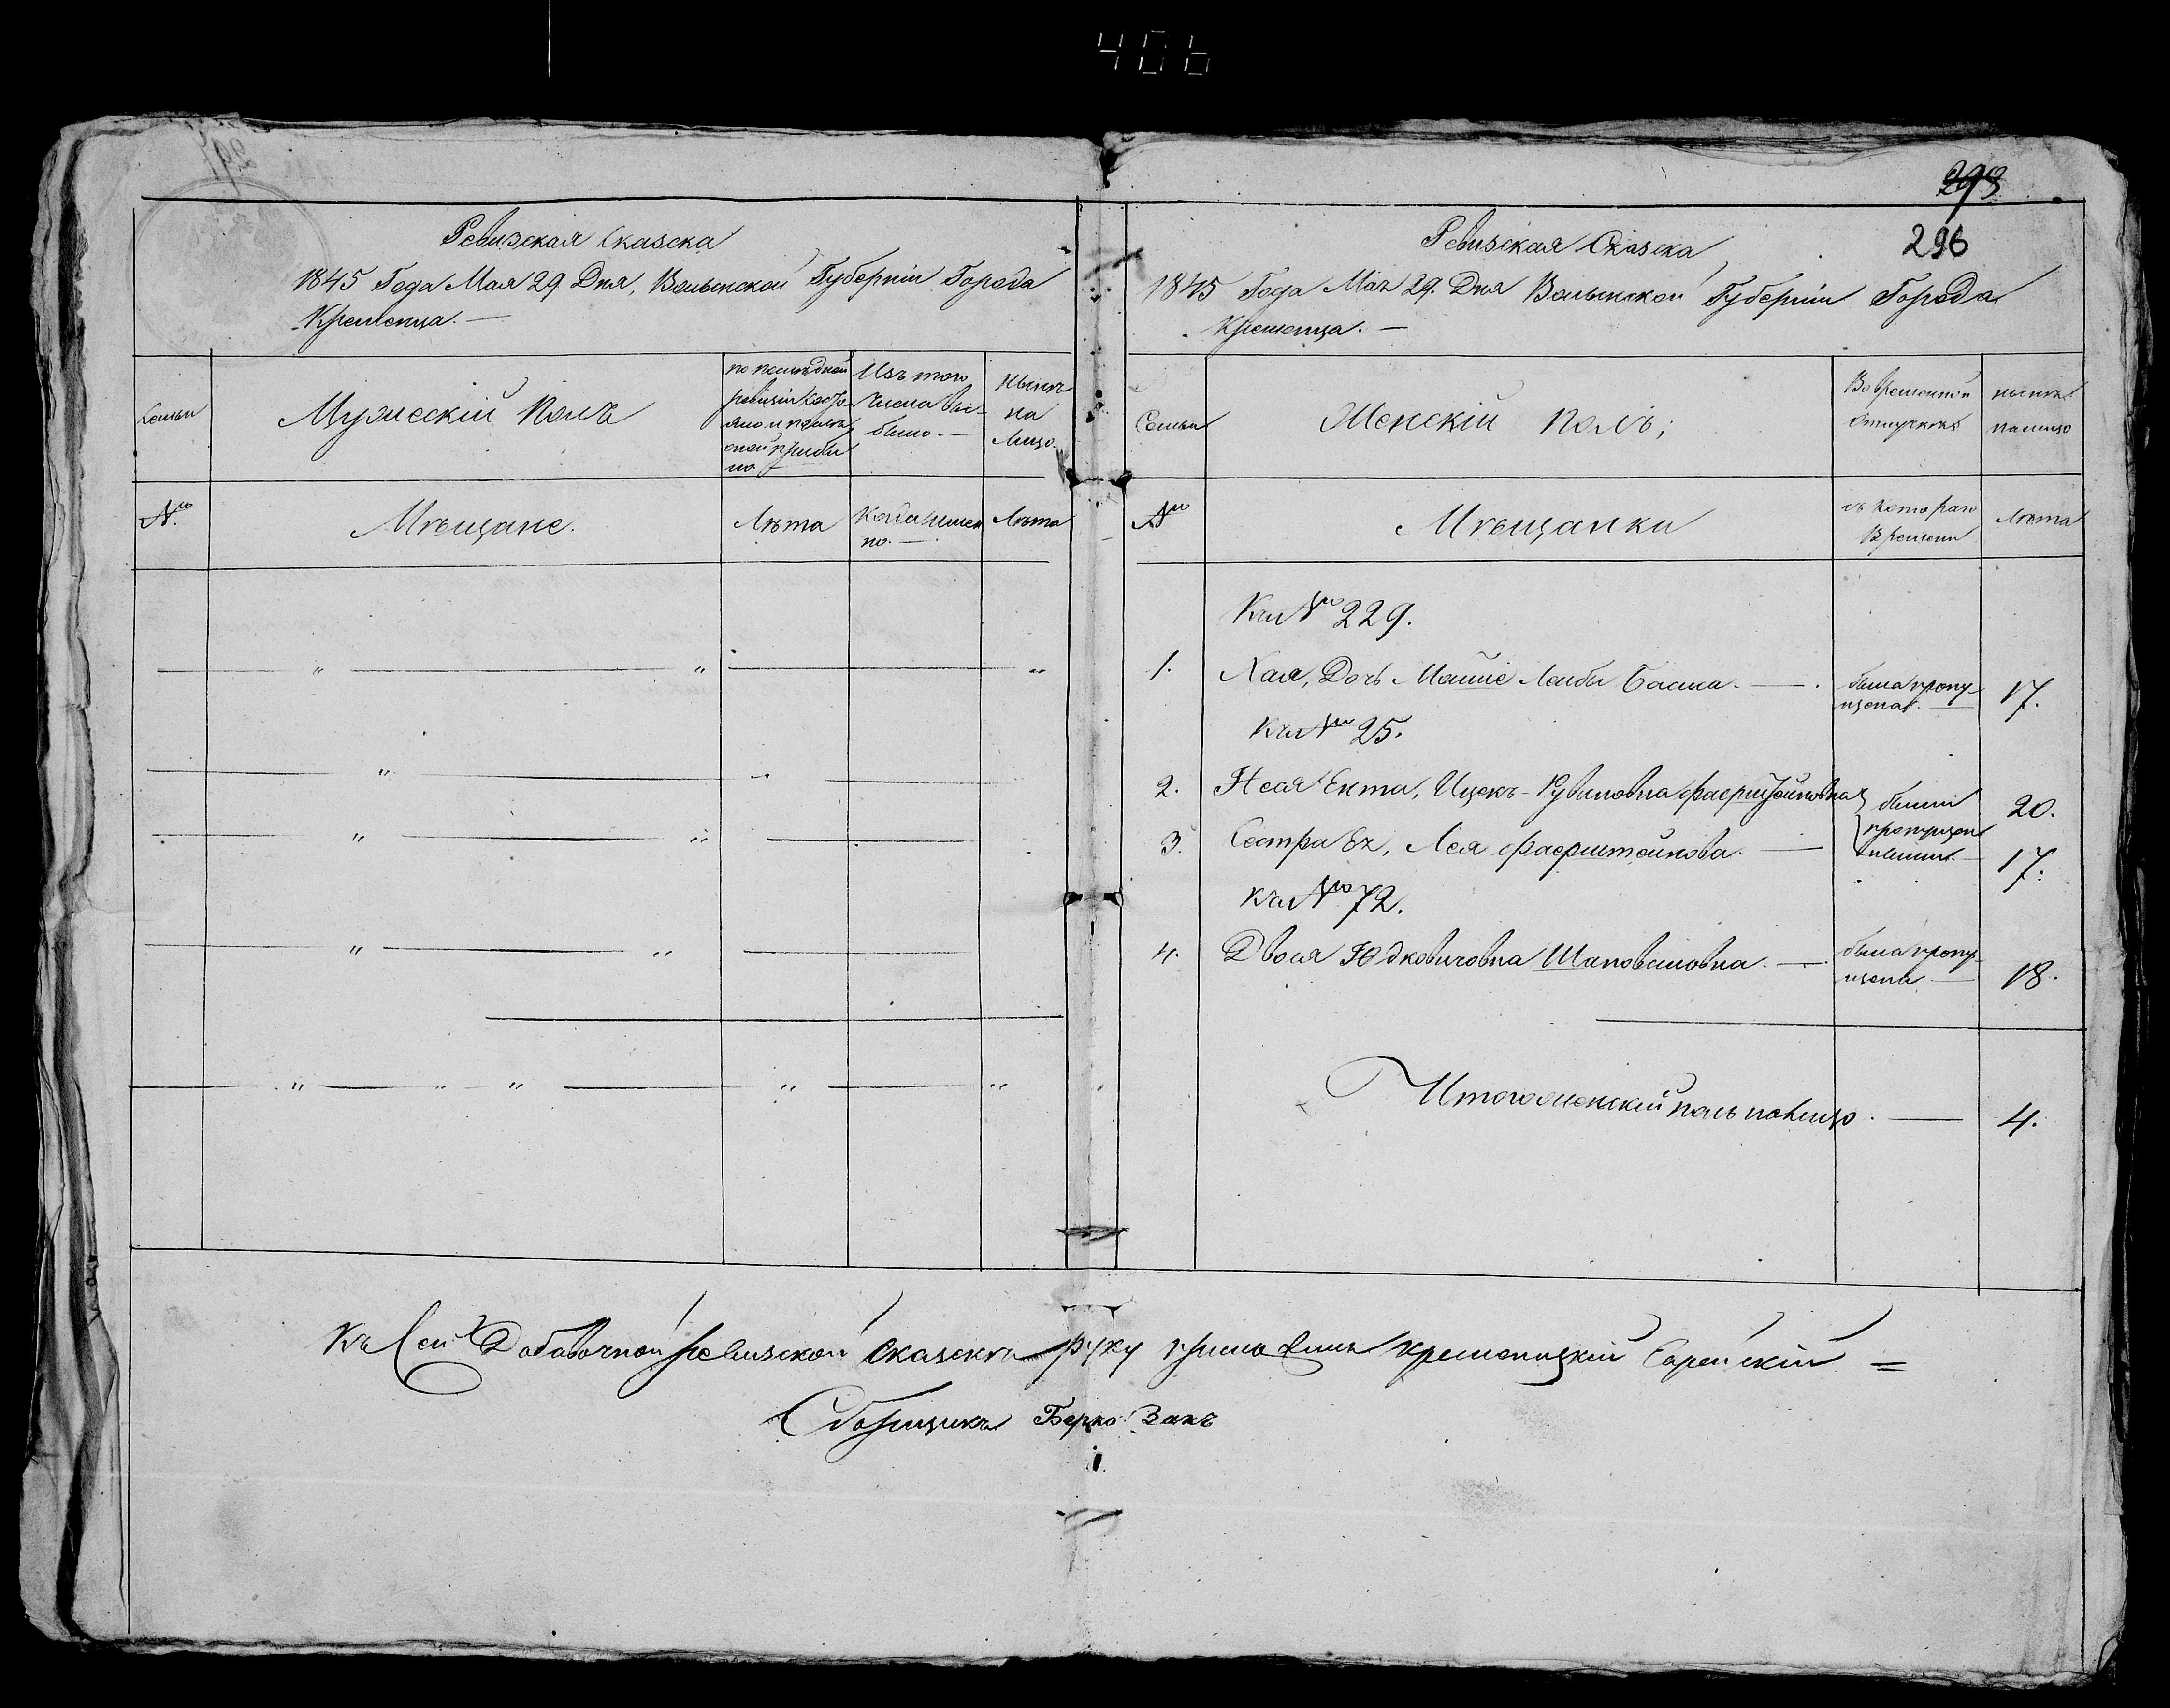 406
293
296
Ревизская Сказска
1845 Года Мая 29 Дня, Волынской Губерніи Города
Кременца. —
Семьи
Мужескій Полъ
по последней
ревизіи состо-
яло и после
оной прибы
ло
Изъ того
числа вы-
было. —
Нынѣ
на
лицо.
№
Мѣщане.
Лѣта
Когда имен
но. —
Лѣта
Ревизская Сказска
1845 Года Маія 29. Дня Волынской Губерніи Города
Кременца. —
Семьи
Женскій Полъ;
Во временной
отлучкѣ
нынѣ
налицо
№
Мѣщанки
съ котораго
Времени
Лѣта
Къ № 229.
1. Хая, Дочь Лейбы — . была пропу-
щена. — 17.
Къ № 25.
2. Нехая Ента, Ицекъ-Рувиновна Фаерштейновна были 20.
пропущен
3. Сестра Ея, Лея Фаерштейнова. — 17.
Къ № 72.
4. Двоя Юдковичовна Шаповаловна. — была пропу-
щена — 18.
Итого женскій полъ налицо. — 4.
Къ Сей Добавочной ревизской Сказски руку приложилъ Кременецкій Еврейскій =
Сборщикъ Берко Закъ